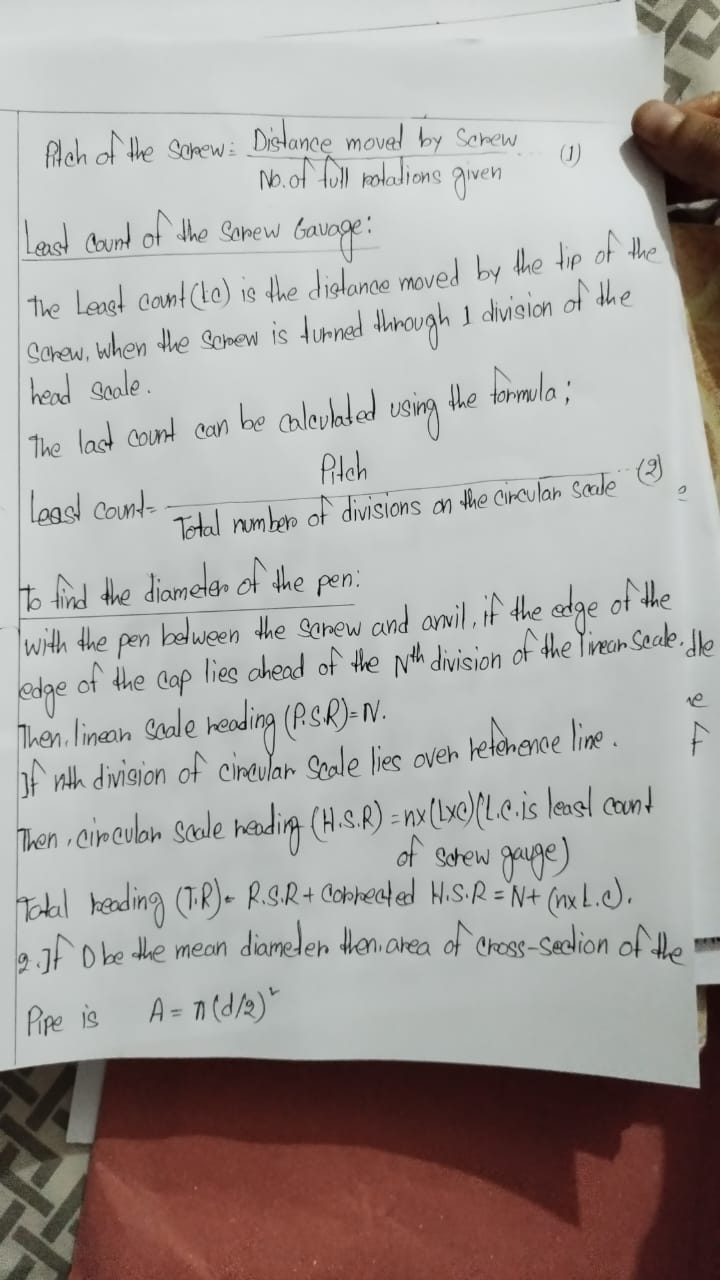 Pitch of the Screw = Distance moved by Screw / No. of full rotations given ... (1)
Least Count of the Screw Gauage:
The Least count (Lc) is the distance moved by the tip of the
Screw, when the Screw is turned through 1 division of the
head Scale.
The last count can be calculated using the formula;
Least count = Pitch / Total number of divisions on the circular Scale ... (2)
To find the diameter of the pen:
with the pen between the screw and anvil, if the edge of the
edge of the cap lies ahead of the Nth division of the linear Scale.
Then, linear Scale reading (P.S.R) = N.
If nth division of circular Scale lies over reference line.
Then, circular Scale reading (H.S.R) = nx(Lxc) (L.c. is least count
of screw gauge)
Total reading (T.R) = R.S.R + Corrected H.S.R = N + (nx L.c).
2. If D be the mean diameter then, area of cross-section of the
Pipe is A = π(d/2)²